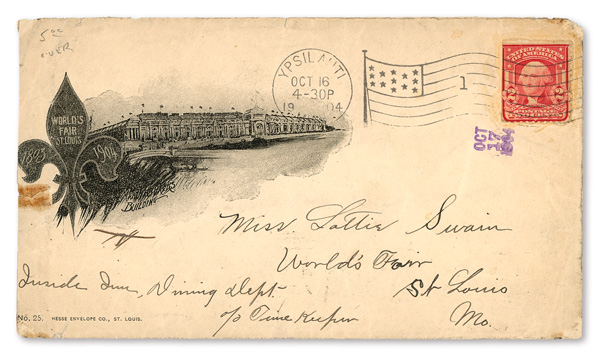 5 00
OVER
WORLD'S
FAIR
ST. LOUIS
1803 1904
BUILDING
YPSILANTI
OCT 16
4-30P
1904
1
UNITED STATES
OF AMERICA
2 2
POSTAGE
OCT
17
1904
Miss Lottie Swain
World's Fair
St Louis
Mo.
Inside Inn, Dining Dept.
c/o Time Keeper
No. 25. HESSE ENVELOPE CO., ST. LOUIS.